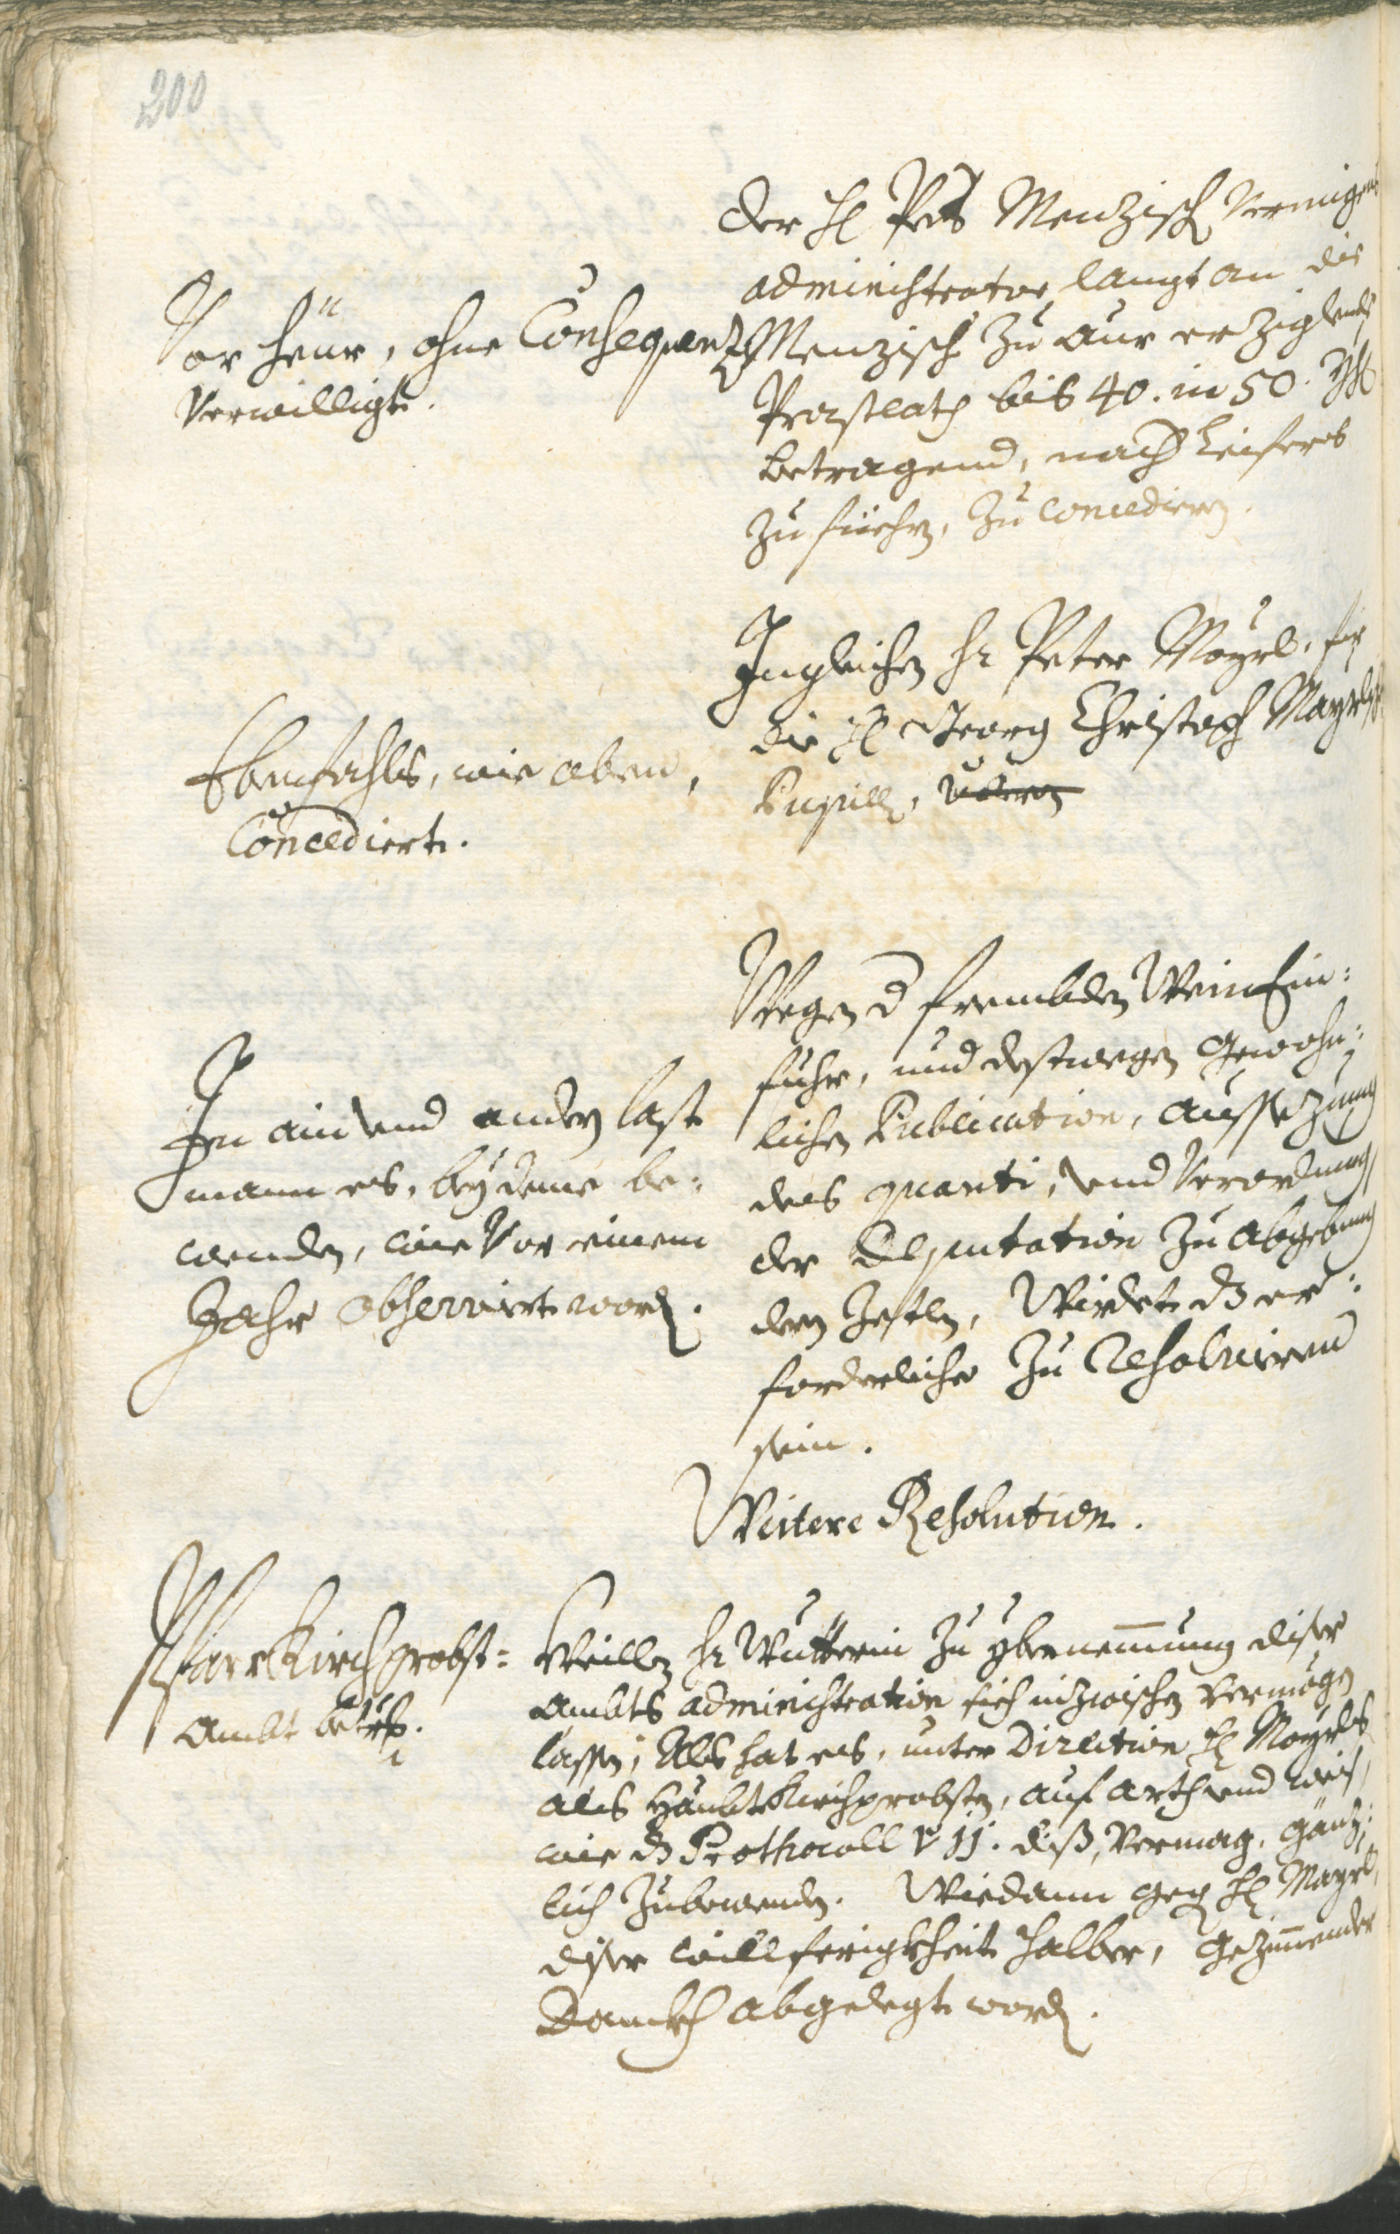 200
der H: Peter Menzisch Vermigens
administrator langt an die
Menzisch zu Aur erziglende
Praschlath bis 40. in 50. Yh:
betragend, nach Leifers
zu führn, zu concediern.
Vor heür, ohne Consequenz
Verwilligt.
Ingleichen Hr Peter Mayrl, für
die H: Georg Christoph Mayrlsch
Pupilln,
Ebenfahls, wie oben,
Concediert.
Wegen d frembden Wein Ein:
fuhr, und destwegen gewohn:
lichen Publication, aussezung
des quanti, und Verordnung
der Deputation zu abgebung
dern Zetln, Wirdet dz er:
forderliche zu resolvieren
sein.
In ain und andern last
mann es, bey deme be:
wenden, wie Vor einem
Jahr observiert word.
Weitere Resolution.
Pfarr Kirchprobst:
Ambt betrf:
Weillen Hr Wutterin zu ybernemmung diser
Ambts administration sich inzwischen vermögen
lassen; Als hat es, unter Direction H: Mayrls
als Haubt Kirchprobsten, auf arth und weis,
wie dz Prothocoll v 11. diß, vermag, gänz:
lich zubewenden. Wie dann gegen H: Mayrl,
diser willferigkheit halber, gezimmender
Danckh abgelegt word.